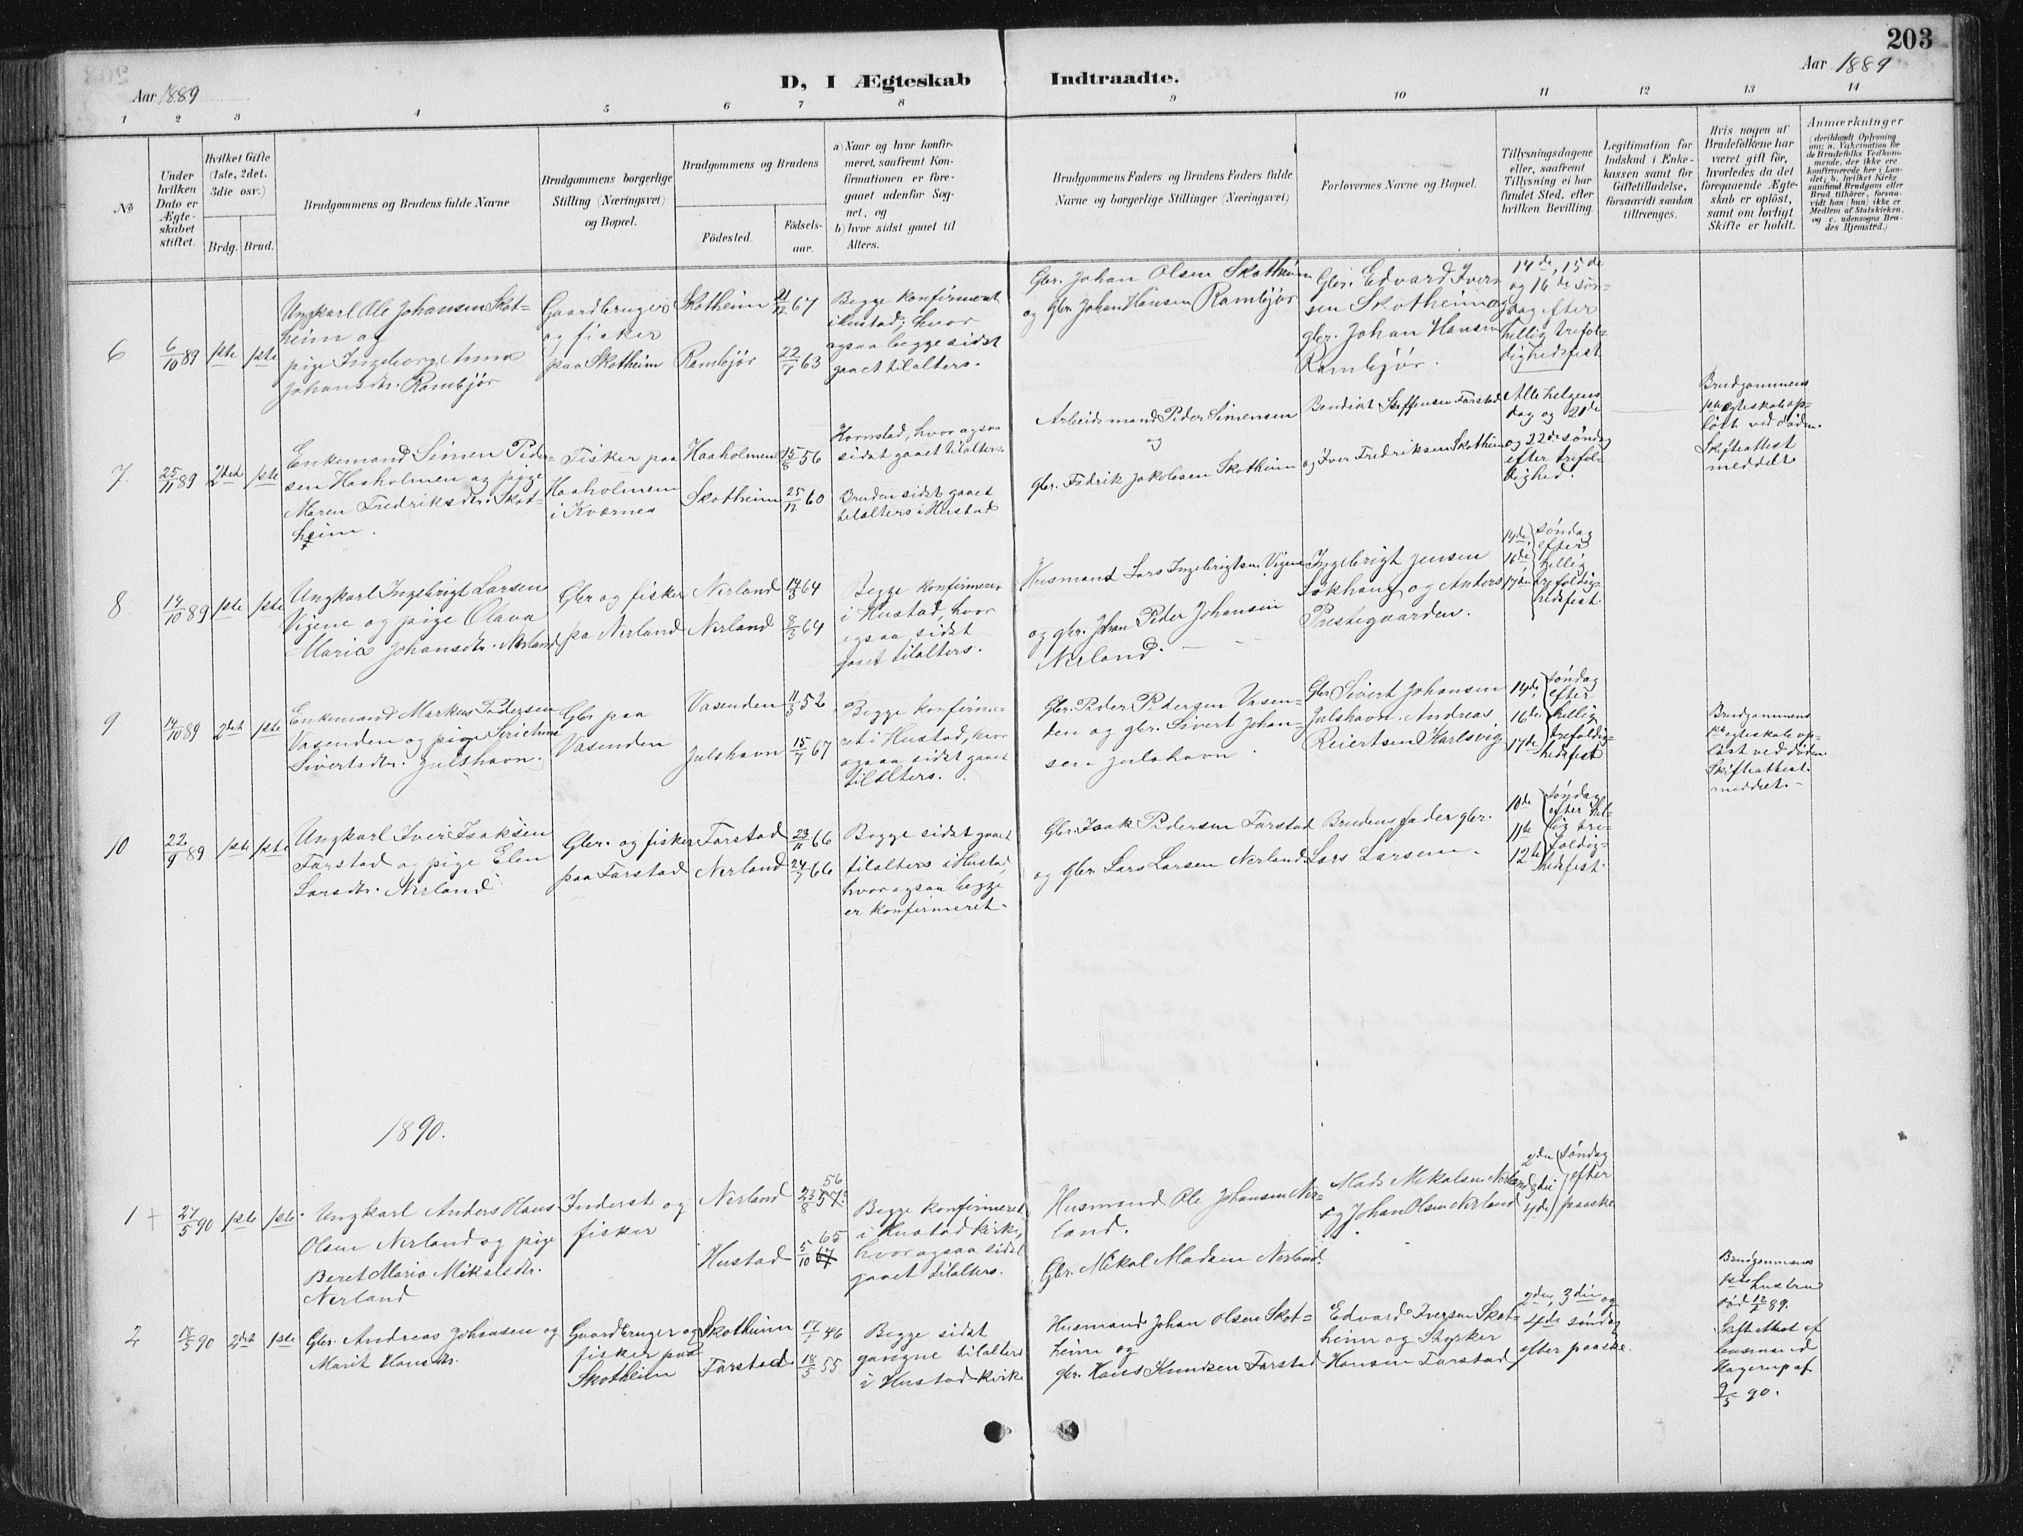 203
Aar 1889
D, I Ægteskab Indtraadte.
Aar 1889
1 2 3 4 5 6 7 8 9 10 11 12 13 14
№
Under
hvilken
Dato er
Ægte-
skabet
stiftet.
Hvilket Gifte
(1ste, 2det.
3die osv.)
Brdg. Brud.
Brudgommens og Brudens fulde Navne
Brudgommens borgerlige
Stilling (Næringsvei)
og Bopæl.
Brudgommens og Brudens
Fødested.
Fødsels-
aar.
a) Naar og hvor konfir-
meret, saafremt Kon-
firmationen er fore-
gaaet udenfor Sog-
net, og
b) hvor sidst gaaet til
Alters.
Brudgommens Faders og Brudens Faders fulde
Navne og borgerlige Stillinger (Næringsvei)
Forlovernes Navne og Bopæl.
Tillysningsdagene
eller, saafremt
Tillysning ei har
fundet Sted, efter
hvilken Bevilling.
Legitimation for
Indskud i Enke-
kassen samt for
Giftetilladelse,
forsaavidt saadan
tiltrænges.
Hvis nogen af
Brudefolkene har
været gift før,
hvorledes da det
foregaaende Ægte-
skab er opløst,
samt om lovligt
Skifte er holdt.
Anmærkninger
(deriblandt Oplysning
om: a. Vakcination for
de Brudefolks Vedkom-
mende, der ikke ere
konfirmerede her i Lan-
det; b. hvilket Kirke-
samfund Brudgom eller
Brud tilhører, forsaa-
vidt han (hun) ikke er
Medlem af Statskirken,
og c. udensogns Bru-
des Hjemsted.)
6
6/10 89
1ste 1ste
Ungkarl Ole Johansen Skot-
heim og
pige Ingeborg Anna
Johansdtr. Rambjør
Gaardbruger
og fisker
paa Skotheim
Skotheim 21/12 67
Rambjør 22/7 63
Begge konfirmeret
i Hustad, hvor
ogsaa begge sidst
gaaet tilalters.
Gbr. Johan Olsen Skotheim
og gbr. Johan Hansen Rambjør
Gbr. Edvard Iver-
sen Skotheim og
gbr. Johan Hansen
Rambjør.
14de, 15de
og 16de søn-
dag efter
hellig trefol-
dighedsfest
7.
25/11 89
2det 1ste
Enkemand Simen Peder-
sen Haaholmen og pige
Maren Fredriksdtr. Skot-
heim.
Fisker paa
Haaholmen
i Kværnes
Haaholmen 15/8 56
Skotheim 25/12 60
Kornstad, hvor ogsaa
sidst gaaet tilalters.
Bruden sidst gaaet
tilalters i Hustad
Arbeidsmand Peder Simensen
og
gbr. Fedrik Jakobsen Skotheim
Bendikt Steffensen Farstad
og Iver Fredriksen Skotheim
Alle helgens
dag og 21de
og 22de søndag
efter trefol-
dighed.
Brudgommens
1ste ægteskab op-
løst ved døden.
Skifteattest
meddelt
8
14/10 89
1ste 1ste
Ungkarl Ingebrigt Larsen
Vigene og pige Olava
Maria Johansdtr. Nerland
Gbr og fisker
paa Nerland
Nerland 14/3 64
Nerland 8/3 64
Begge konfirmeret
i Hustad, hvor
ogsaa sidst
gaaet tilalters.
Husmand Lars Ingebrigtsen Vigene
og gbr. Johan Peder Johansen
Nerland.
Ingebrigt Jensen
Sokhaug og Anders
Prestegaarden.
14de
16de
17de
søndag
efter
hellig
trefoldig-
hedsfest.
9
14/10 89
2det 1ste
Enkemand Markus Pedersen
Vasenden og pige Sirianna
Sivertsdtr. Julshavn.
Gbr paa
Vasenden
Vasenden 11/3 52
Julshavn 15/7 67
Begge konfirme-
ret i Hustad, hvor
ogsaa sidst gaaet
tilalters.
Gbr. Peder Pedersen Vasen-
den og gbr. Sivert Johan-
sen Julshavn
Gbr Sivert Johansen
Julshavn Andreas
Reiertsen Karlsvig
14de,
16de
17de
søndag
efter
hellig
trefoldig-
hedsfest
Brudgommens
1ste ægteskab op-
løst ved døden.
Skifteattest
meddelt.
10
22/9 89
1ste 1ste
Ungkarl Iver Isaksen
Farstad og pige Elen
Larsdtr. Nerland
Gbr. og fisker
paa Farstad
Farstad 23/11 66
Nerland 24/7 66
Begge sidst gaaet
tilalters i Hustad,
hvor ogsaa begge
er konfirmeret.
Gbr. Isak Pedersen Farstad
og gbr. Lars Larsen Nerland
Brudens fader gbr.
Lars Larsen.
10de
11te
12te
søndag
efter hel-
lig tre-
foldig-
hedsfest.
1890.
1
27/5 90
1ste 1ste
Ungkarl Anders Hans
Olsen Nerland og pige
Beret Maria Mikalsdtr.
Nerland
Inderst og
fisker
Nerland 23/8 57 56
Hustad 5/10 67 65
Begge konfirmeret
i Hustad kirke,
hvor ogsaa sidst
gaaet tilalters.
Husmand Ole Johansen Ner-
land.
Gbr. Mikal Madsen Nerland.
Mads Mikalsen Nerland
og Johan Olsen Nerland
2den
3die
4de
søndag
efter
paaske
2
17/5 90
2det 1ste
Gbr. Andreas Johansen og
Marit Hansdtr.
Gaardbruger og
fisker paa
Skotheim
Skotheim 17/ 46
Farstad 18/5 55
Begge sidst
gangne tilalters
i Hustad kirke
Husmand Johan Olsen Skot-
heim og
gbr. Hans Knudsen Farstad
Edvard Iversen Skot-
heim og Styrker
Hansen Farstad
2den, 3die og
4de søndag
efter paaske.
Brudgommens
1ste hustru
død 89.
Skifteattest af
lensmand
Hagerup af
9/5 90.